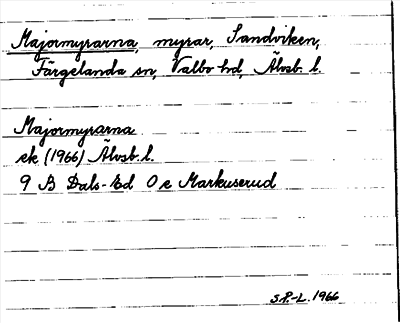 Majormyrarna, myrar, Sandviken,
Färgelanda sn, Valbo hd, Älvsb. l.
Majormyrarna
ek (1966) Älvsb. l.
9 B Dals-Ed 0 e Markuserud
S.P.-L. 1966